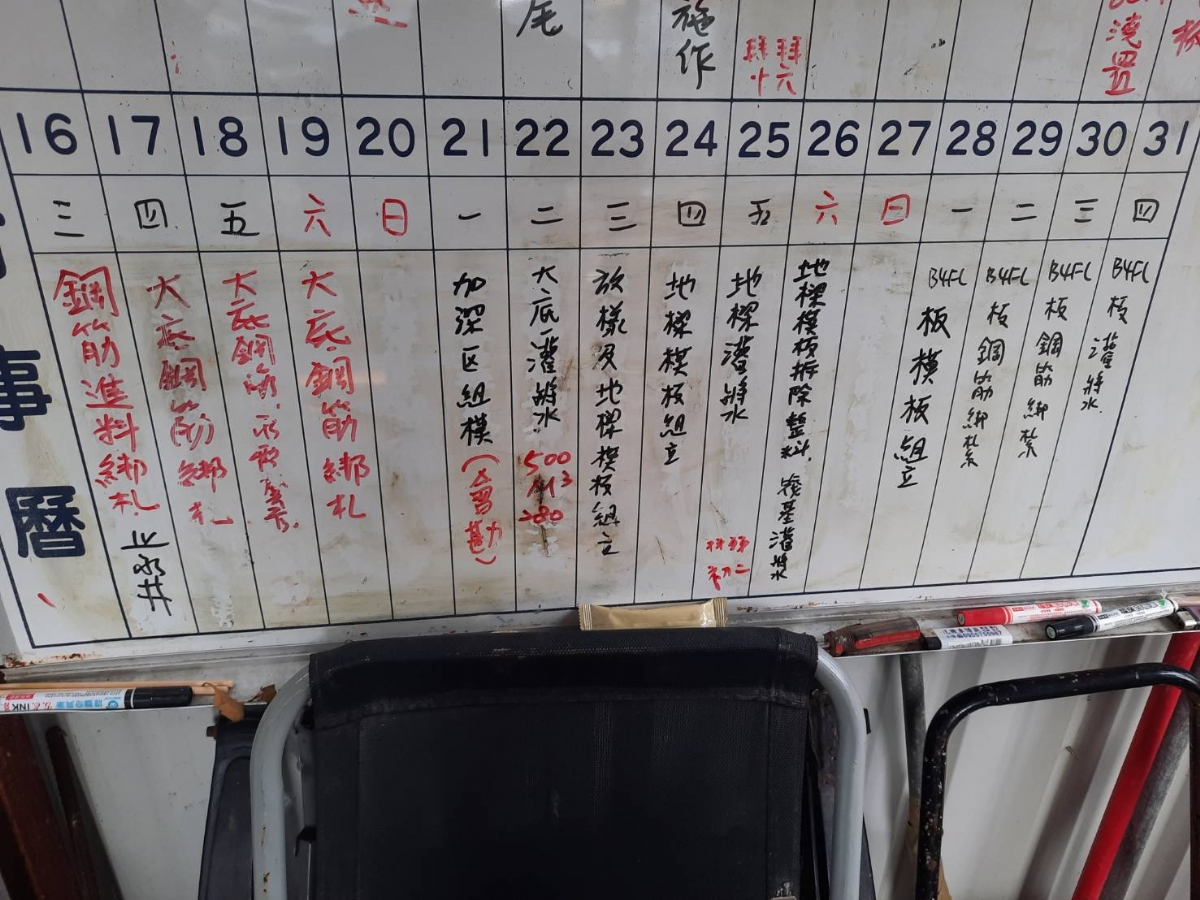 尾
施作
拜拜
十六
澆置
板
16 17 18 19 20 21 22 23 24 25 26 27 28 29 30 31
三 四 五 六 日 一 二 三 四 五 六 日 一 二 三 四
事曆
鋼筋進料綁札
大底鋼筋綁札
止水井
大底鋼筋
大底鋼筋綁札
加深区組模
大底灌漿
500
M3
放樣及地樑模板組立
地樑模板組立
地樑灌漿
初二
地樑模板拆除整料
後基灌漿
B4FL
板模板組立
B4FL
板鋼筋綁紮
B4FL
板鋼筋綁紮
B4FL
板灌漿
INK